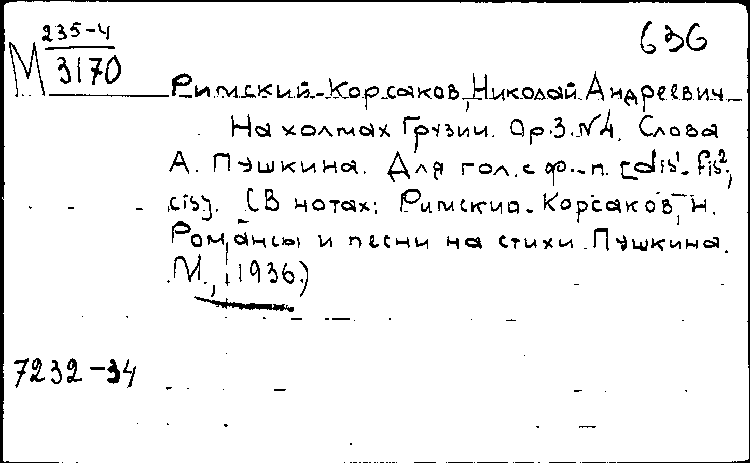 235-4
М 3170
636
Римский-Корсаков, Николай Андреевич
На холмах Грузии. Op.3.№4. Слова
А. Пушкина. Для гол. с ф.-п. [dis¹-fis²,
cis]. (В нотах: Римский-Корсаков, Н.
Романсы и песни на стихи Пушкина.
М., 1936.)
7232-34